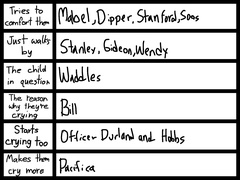 Tries to comfort them
Mabel, Dipper, Stanford, Soos
Just walks by
Stanley, Gideon, Wendy
The child in question
Waddles
The reason why they're crying
Bill
Starts crying too
Officer Durland and Hobbs
Makes them cry more
Pacifica